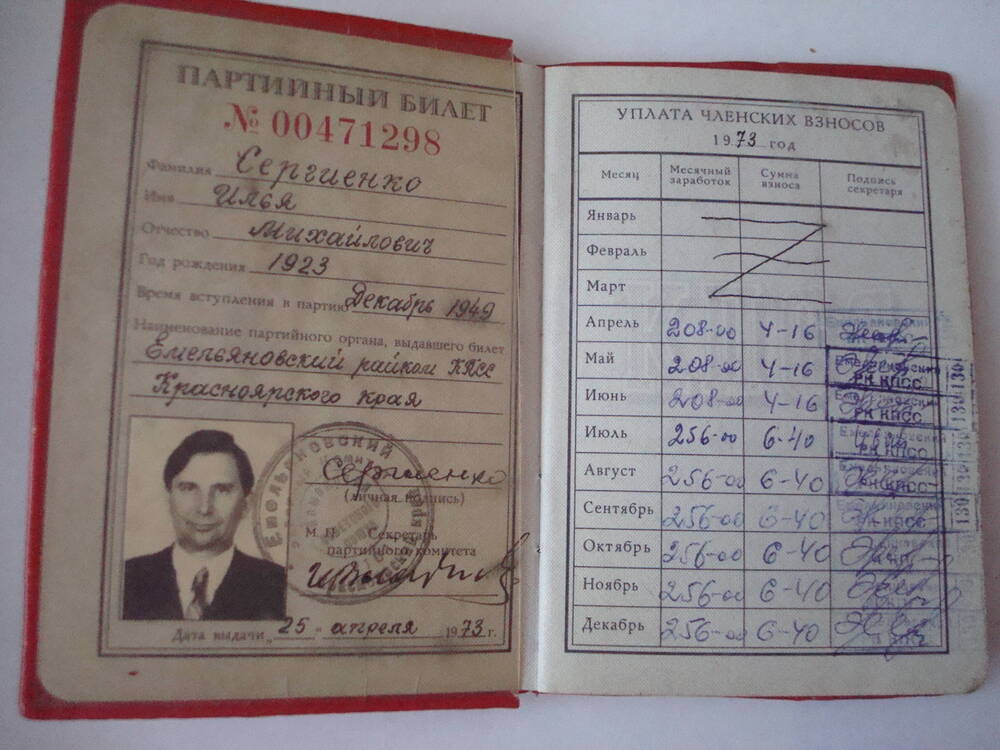 ПАРТИЙНЫЙ БИЛЕТ
№ 00471298
Фамилия Сергиенко
Имя Илья
Отчество Михайлович
Год рождения 1923
Время вступления в партию Декабрь 1949
Наименование партийного органа, выдавшего билет
Емельяновский райком КПСС
Красноярского края
Сергиенко
(личная подпись)
М. П. Секретарь
партийного комитета
Дата выдачи „25" апреля 1973 г.
ЕМЕЛЬЯНОВСКИЙ
УПЛАТА ЧЛЕНСКИХ ВЗНОСОВ
1973 год
Месяц Месячный заработок Сумма взноса Подпись секретаря
Январь
Февраль
Март
Апрель 208-00 4-16
Май 208-00 4-16 Емельяновский РК КПСС
Июнь 208-00 4-16 Емельяновский РК КПСС
Июль 256-00 6-40 Емельяновский РК КПСС
Август 256-00 6-40 Емельяновский РК КПСС
Сентябрь 256-00 6-40 Емельяновский РК КПСС
Октябрь 256-00 6-40
Ноябрь 256-00 6-40
Декабрь 256-00 6-40
130 130
130 130
130